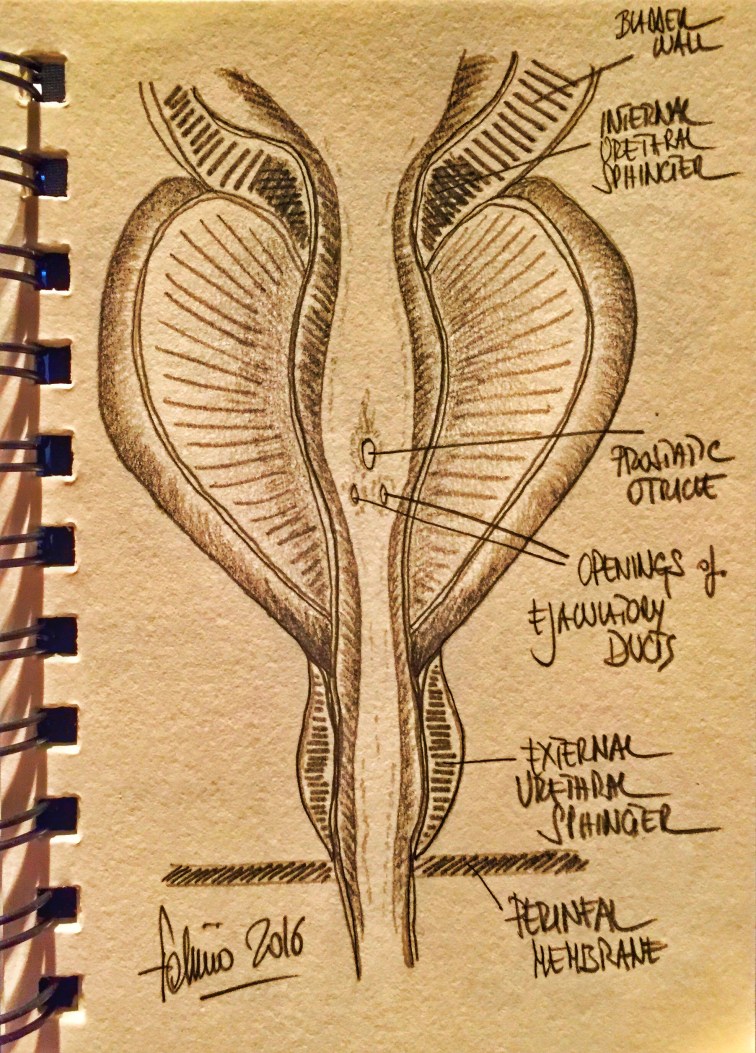 BLADDER
WALL
INTERNAL
URETHRAL
SPHINCTER
PROSTATIC
UTRICLE
OPENINGS of
EJACULATORY
DUCTS
EXTERNAL
URETHRAL
SPHINCTER
PERINEAL
MEMBRANE
2016